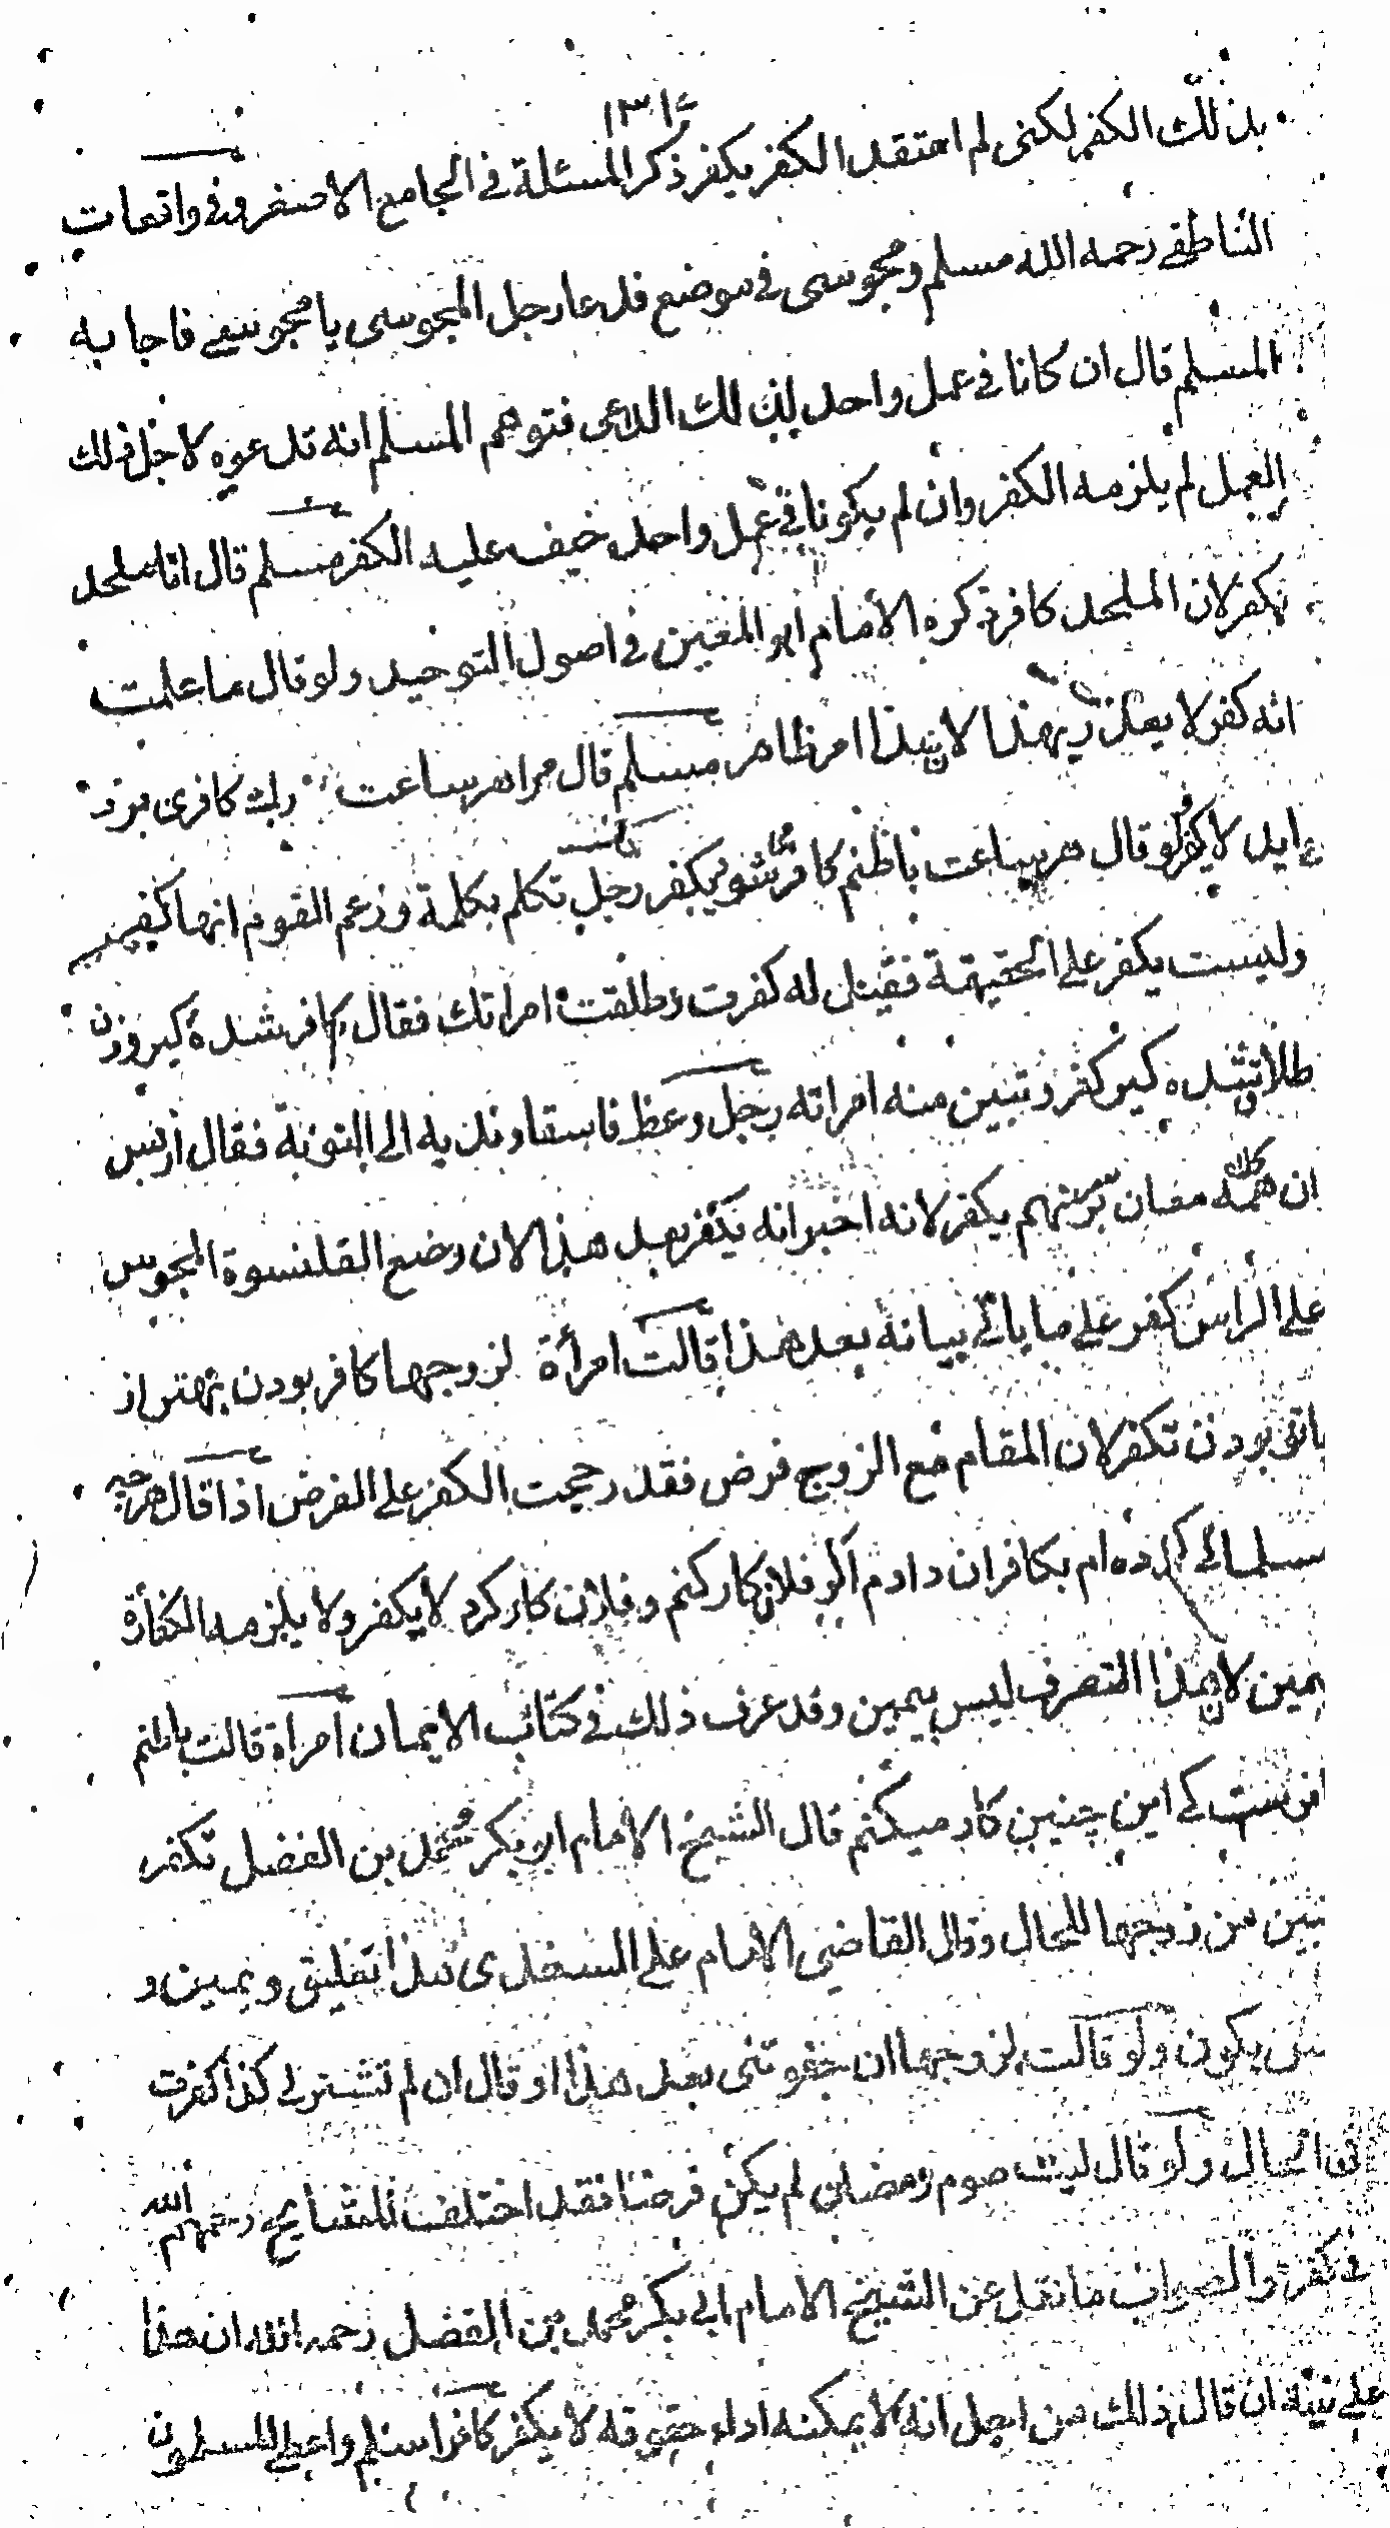 ١٣١٤
بذلك الكفر لكنى لم اعتقد الكفر يكفر ذكر المسئلة في الجامع الاصغر وفى واقعات
الناطفي رحمه الله مسلم ومجوسى في موضع فدعا رجل المجوسى يا مجوسي فاجابه
المسلم قال ان كانا في عمل واحد لذلك الداعى فتوهم المسلم انه تدعوه لاجل ذلك
العمل لم يلزمه الكفر وان لم يكونا في عمل واحد خيف عليه الكفر مسلم قال انا ملحد
يكفر لان الملحد كافر ذكره الامام ابو المعين في اصول التوحيد ولو قال ما علمت
انه كفر لا يعذر بهذا لان هذا امر ظاهر مسلم قال مرا هر ساعت كافرى
ايد لا يكفر ولو قال هر ساعت كافر شو يكفر رجل تكلم بكلمة وزعم القوم انها كفر
وليست يكفر على الحقيقة فقيل له كفرت وطلقت امراتك فقال كافر شده كير وزن
طلاق شده كير كفر وتبين منه امراته رجل وعظ فاسقا وندبه الى التوبة فقال ازپس
ان همه مغان بر نهم يكفر لانه اخبر انه يكفر بعد هذا لان وضع القلنسوة المجوس
على الراس كفر على ما ياتي بيانه بعد هذا قالت امرأة لزوجها كافر بودن بهتر از
باتو بودن تكفر لان المقام مع الزوج فرض فقد رجحت الكفر على الفرض اذا قال هرچه
مسلماني كرده ام بكافران دادم اگر فلان كار كنم وفلان كار كرد لا يكفر ولا يلزمه الكفارة
يمين لان هذا التصرف ليس بيمين وقد عرف ذلك في كتاب الايمان امراة قالت
كے اين چنين كار ميكنم قال الشيخ الامام ابو بكر محمد بن الفضل تكفر
تبين من زوجها للحال وقال القاضي الامام على السغدى هذا تعليق ويمين و
يكون ولو قالت لزوجها ان جفوتنى بعد هذا او قال ان لم تشتر لي كذا كفرت
في الحال ولو قال ليت صوم رمضان لم يكن فرضا فقد اختلف المشايخ رحمهم الله
في كفره والصواب ما نقل عن الشيخ الامام ابي بكر محمد بن الفضل رحمه الله ان هذا
على نيته ان قال ذلك من اجل انه لا يمكنه اداء حقوقه لا يكفر كافر اسلم واعطى المسلمون